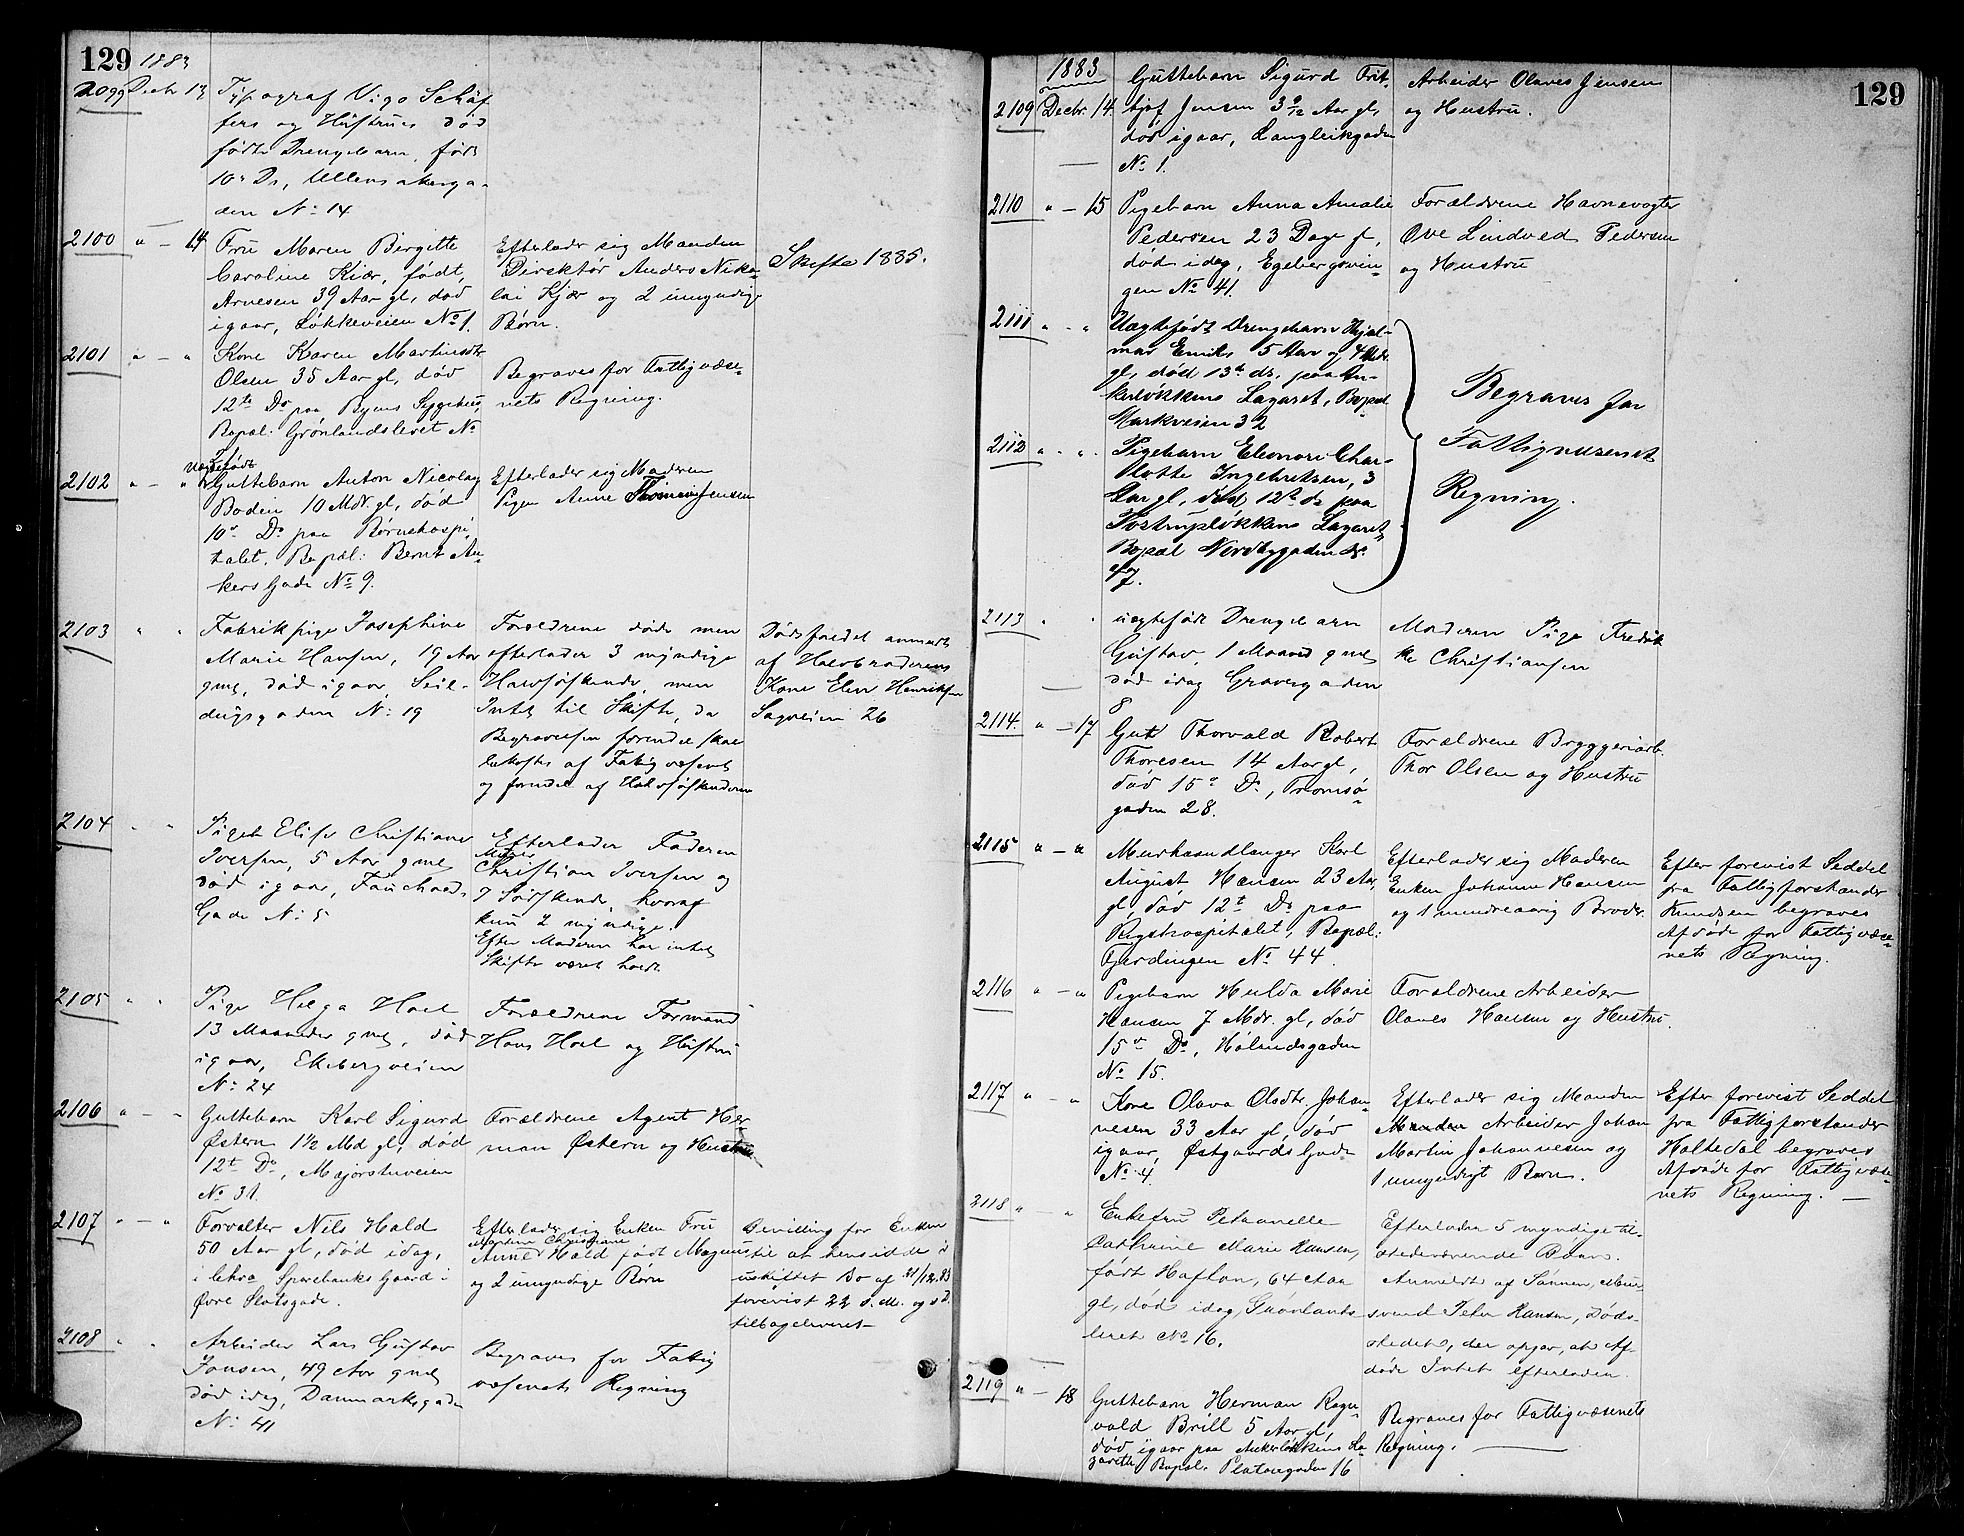 129 1883
2099 Decbr 13 Typograf Vigo Schäf
fers og Hustrues død
fødte Drengebarn, født
10 Ds, Ullensakerga-
den No 14
2100 " — 14 Fru Maren Birgitte
Caroline Kiær, født,
Arnesen 39 Aar gl, død
igaar, Løkkeveien No 1.
Efterlader sig Manden
Direktør Anders Niko-
lai Kjær og 2 umyndige
Børn.
Skifte 1885.
2101 " — " Kone Karen Martinsdtr
Olsen 35 Aar gl, død
12te Ds paa Byens Sygehus,
Bopæl: Grønlandsleret No
Begraves for Fattigvæse-
nets Regning.
2102 " — " Uægtefødt
Guttebarn Anton Nicolay
Boden 10 Mdr. gl, død
10de Ds paa Børnehospi-
talet, Bopæl: Bernt An-
kers Gade No 9.
Efterlader sig Moderen
Pigen Anne Jensen
2103 " " Fabrikpige Josephine
Marie Hansen, 19 Aar
gml, død igaar, Seil-
dugsgaden No 19
Forældrene døde men
efterlader 3 myndige
Halvsøskende, men
Intet til Skifte, da
Begravelsen forinden skal
bekostes af Fattigvæsenet
og forinden af Halvsøskenderne
Dødsfaldet anmeldt
af Halvbroderens
Kone Elen Henriksen
Sagveien 26
2104 " " Pigeb Elise Christiane
Iversen, 5 Aar gml
død igaar, Fauchalds
Gade No 5
Efterlader Faderen
Murer
Christian Iversen og
7 Søskende, hvoraf
kun 2 myndige.
Efter Moderen har intet
Skifte været holdt
2105 " " Pige Helga Hoel
13 Maaneder gml, død
igaar, Ekebergveien
No 24
Forældrene Formand
Hans Hoel og Hustru
2106 " — " Guttebarn Karl Sigurd
Østern 1½ Md gl, død
12te Ds, Majorstuveien
No 31.
Forældrene Agent Her-
man Østern og Hustru
2107 " — " Forvalter Nils Hald
50 Aar gl, død idag,
i Chra Sparebanks Gaard i
Øvre Slotsgade.
Efterlader sig Enken Fru
Martine Christiane
Hald født Magnus
og 2 umyndige Børn
Bevilling for Enken
til at hensidde i
uskiftet Bo af 21/12.83
forevist 22 s. M. og s. D.
tilbageleveret —
2108 " " Arbeider Lars Gustav
Jansen, 49 Aar gml
død idag, Danmarksgaden
No 41
Begraves for Fattig
væsenets Regning
129
1883
2109 Decbr. 14. Guttebarn Sigurd Frit-
tjof Jensen 3 9/12 Aar gl,
død igaar, Langleikgaden
No 1.
Arbeider Olaves Jensen
og Hustru.
2110 " — 15 Pigebarn Anna Amalie
Pedersen 23 Dage gl,
død idag, Egebergsvin-
gen No 41.
Forældrene Havnevogter
Ove Lindved Pedersen
og Hustru
2111 " — " Uægtefødt Drengebarn Hjal-
mar Emils 5 Aar og 4 Mdr.
gl, død 13de ds. paa An-
kerløkkens Lazaret, Bopæl
Markveien 32
2112 " " Pigebarn Eleonore Char-
lotte Ingebretsen, 3
Aar gl, død 12te ds paa
Tostrupløkkens Lazaret,
Bopæl Nordbygaden
47.
Begraves for
Fattigvæsenets
Regning.
2113 " " uægtefødt Drengebarn
Gustav, 1 Maaned gml
død idag Gravergaden
8
Moderen Pige Fredrik
ke Christiansen
2114. " — 17 Gut Thorvald Robert
Thoresen 14 Aar gl,
død 15de Ds, Tromsø-
gaden 28.
Forældrene Bryggeriarb.
Thor Olsen og Hustru
2115 " — " Murhaandlanger Karl
August Hansen 23 Aar,
gl, død 12te Ds paa
Rigshospitalet, Bopæl:
Fjerdingen No 44.
Efterlader sig Moderen
Enken Johanne Hansen
og 1 mindreaarig Broder.
Efter forevist Seddel
fra Fattigforstander
Knudsen begraves
Afdøde for Fattigvæse-
nets Regning.
2116 " — " Pigebarn Hulda Marie
Hansen 7 Mdr. gl, død
15de Ds, Hølandsgaden
No 15.
Forældrene Arbeider
Olaves Hansen og Hustru.
2117 " — " Kone Olava Olsdtr. Johan-
nesen 33 Aar gl, død
igaar, Østgaards Gade
No 4.
Efterlader sig Manden
Manden Arbeider Johan
Martin Johannesen og
1 umyndigt Barn.
Efter forevist Seddel
fra Fattigforstander
Holtedal begraves
Afdøde for Fattigvæse-
nets Regning. —
2118 " — " Enkefru Petronelle
Cathrine Marie Hansen,
født Hafton, 64 Aar
gl, død idag, Grønlands
leret No 16.
Efterlader 5 myndige til-
stedeværende Børn.
Anmeldt af Sønnen, Mur-
svend Peter Hansen, Døds-
stedet, der opgav, at Af-
døde Intet efterlader.
2119 " — 18 Guttebarn Herman Ragn-
vald Brill 5 Aar gl,
død igaar paa Ankerløkkens La-
zareth, Bopæl. Platousgaden 16
Begraves for Fattigvæsenets
Regning. —